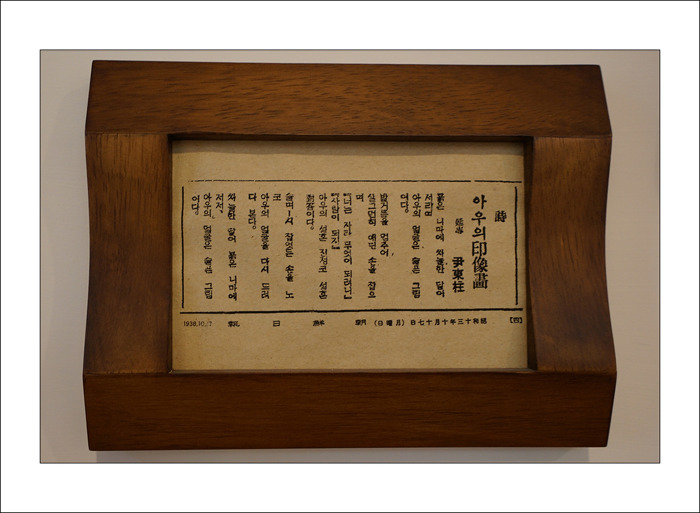 詩
아우의 印像畵
延專 尹東柱
붉은 니마에 싸늘한 달이
서리여
아우의 얼골은 슬픈 그림
이다.
발거름을 멈추어,
살그먼히 애딘 손을 잡으
며
『너는 자라 무엇이 되려니』
『사람이 되지』
아우의 설흔 진정코 설흔
對答이다.
슬며—시 잡엇든 손을 노
코
아우의 얼골을 다시 드려
다 본다.
싸늘한 달이 붉은 니마에
저저,
아우의 얼골은 슬픈 그림
이다.
【四】 昭和十三年十月十七日(月曜日) 朝鮮日報 1938.10.17